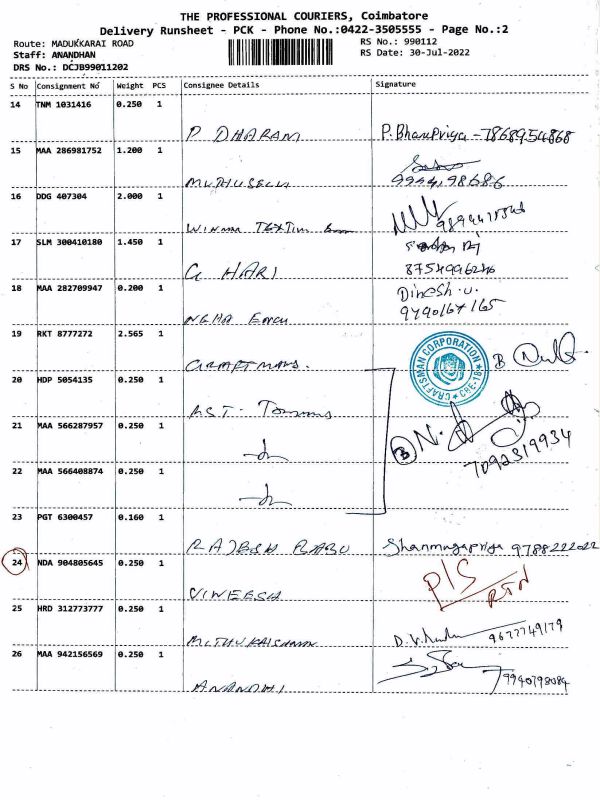 THE PROFESSIONAL COURIERS, Coimbatore
Delivery Runsheet - PCK - Phone No.:0422-3505555 - Page No.:2
Route: MADUKKARAI ROAD RS No.: 990112
Staff: ANANDHAN RS Date: 30-Jul-2022
DRS No.: DCJB99011202
S No Consignment No Weight PCS Consignee Details Signature
14 TNM 1031416 0.250 1
P DHARANI P. Bhanupriya - 7868954868
15 MAA 286981752 1.200 1
MUTHUSELVI
16 DDG 407304 2.000 1
17 SLM 300410180 1.450 1
G HARI
18 MAA 282709947 0.200 1
Dinesh.U.
9790167165
19 RKT 8777272 2.565 1
CRAFTSMAN CORPORATION
B
20 HDP 5054135 0.250 1
AST
21 MAA 566287957 0.250 1
3 N.
7092319934
22 MAA 566408874 0.250 1
23 PGT 6300457 0.160 1
RAJESH BABU Shanmugapriya 9788222022
24 NDA 904805645 0.250 1
P/S
RTN
VINEESH
25 HRD 312773777 0.250 1
MUTHUKRISHNAN 9677749179
26 MAA 942156569 0.250 1
9940798084
ANANDHI